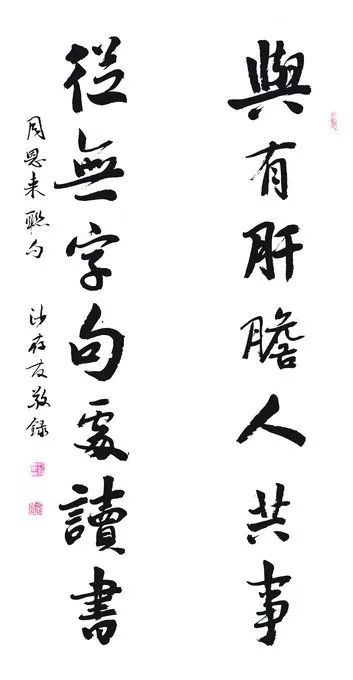 與有肝膽人共事
從無字句處讀書
周恩来联句 沙存友敬録